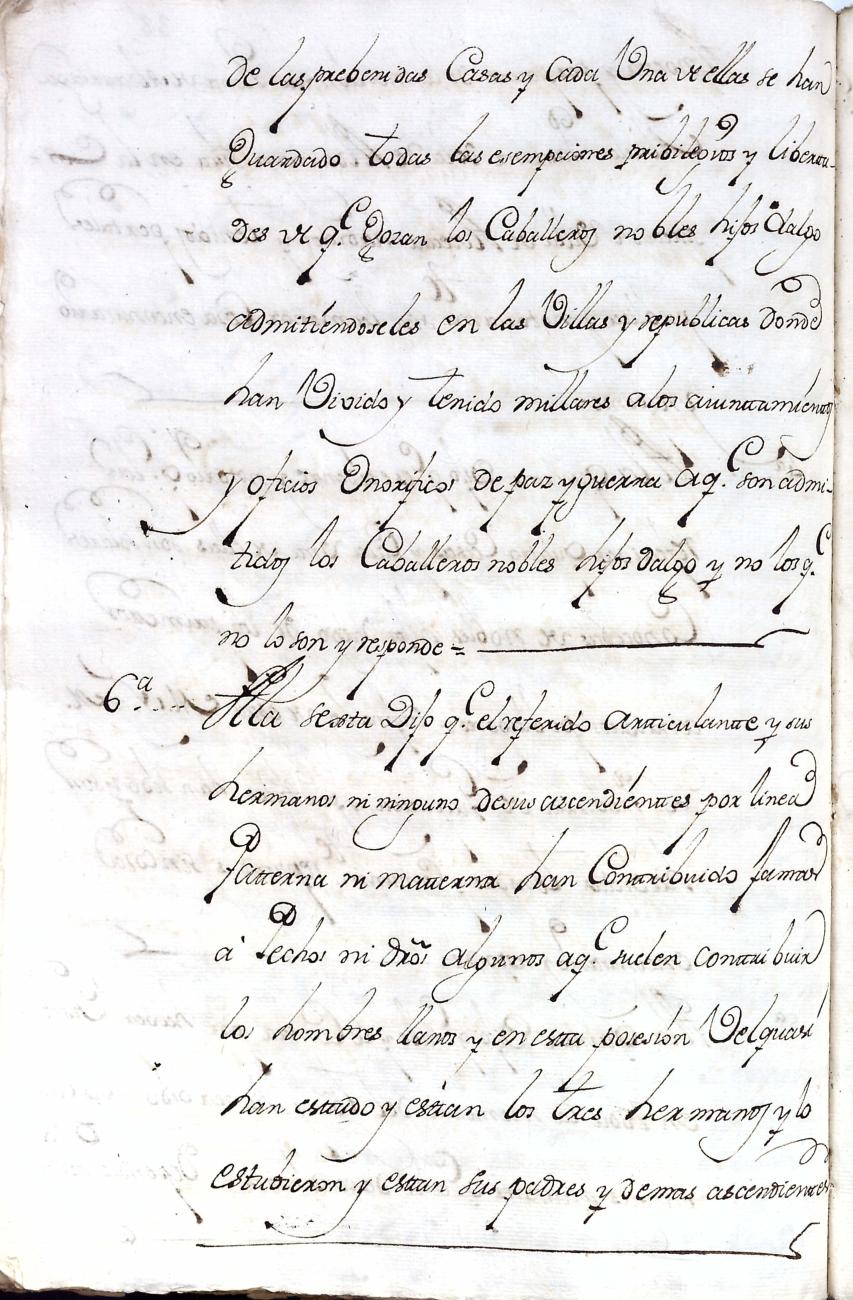 de las prebenidas Casas y Cada Una de ellas se han
Guardado todas las esempciones pribilegios y liberta-
des de q.e Gozan los Caballeros nobles hijos dalgo
admitiéndoseles en las Villas y republicas donde
han Vivido y tenido millares a los aiunttamienttos
y oficios Onorificos de paz y guerra a q.e son admi-
tidos los Caballeros nobles hijos dalgo y no los q.e
no lo son y responde =
6.a Ala sextta Dijo q.e el referido artticulantte y sus
hermanos ni ninguno de sus ascendiénttes por linea
Patterna ni matterna han Conttribuido jamas
a Pechos ni dros algunos a q.e suelen conttribuir
los hombres llanos y en estta posesión Velquasi
han esttado y esttan los tres hermanos y lo
estubieron y esttan sus padres y demas ascendienttes